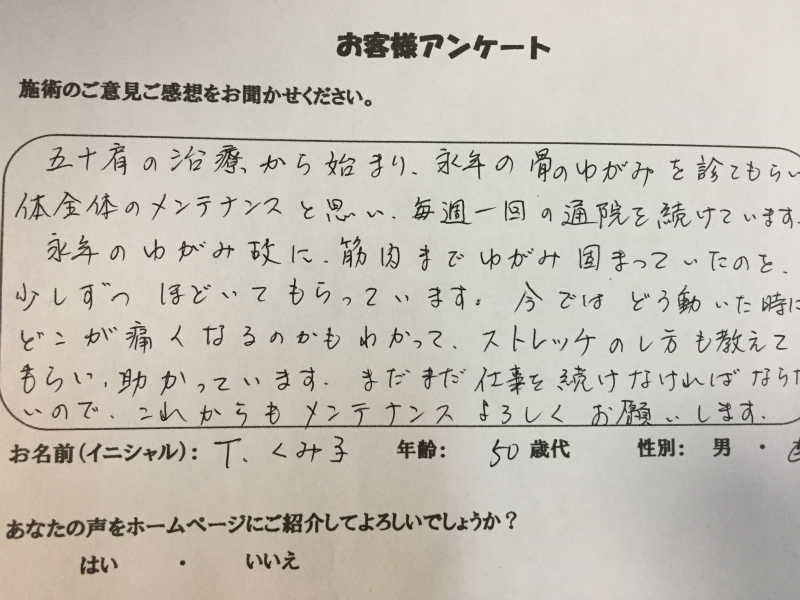 お客様アンケート
施術のご意見ご感想をお聞かせください。
五十肩の治療から始まり、永年の骨のゆがみを診てもらい
体全体のメンテナンスと思い、毎週一回の通院を続けています。
永年のゆがみ故に、筋肉までゆがみ固まっていたのを、
少しずつほどいてもらっています。今ではどう動いた時に
どこが痛くなるのかもわかって、ストレッチのし方も教えて
もらい、助かっています。まだまだ仕事を続けなければならな
いので、これからもメンテナンスよろしくお願いします。
お名前(イニシャル): T、くみ子 年齢: 50 歳代 性別: 男 ・
あなたの声をホームページにご紹介してよろしいでしょうか?
はい ・ いいえ